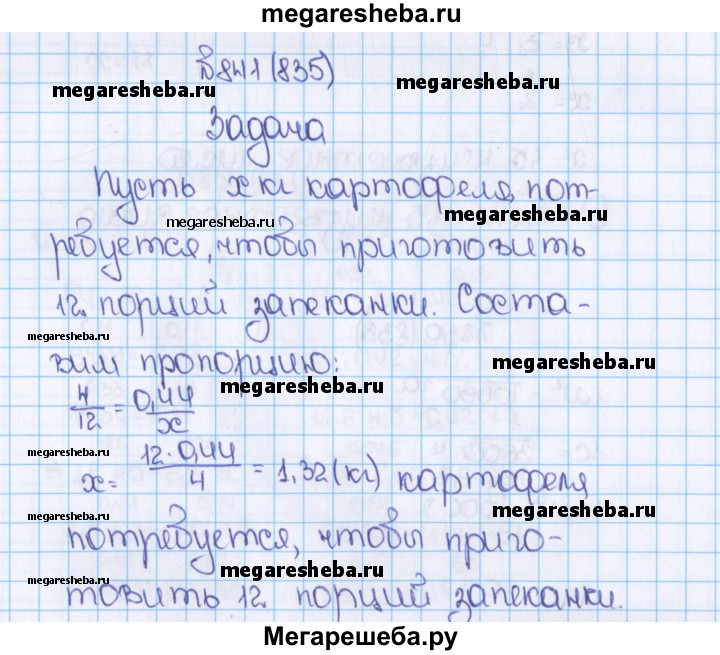 megaresheba.ru
№841 (835)
megaresheba.ru megaresheba.ru
Задача
Пусть x кг картофеля пот-
megaresheba.ru megaresheba.ru
ребуется, чтобы приготовить
12 порций запеканки. Соста-
megaresheba.ru
вим пропорцию: megaresheba.ru
megaresheba.ru
4/12 = 0,44/x
megaresheba.ru
x = 12·0,44/4 = 1,32 (кг) картофеля
megaresheba.ru megaresheba.ru
потребуется, чтобы приго-
megaresheba.ru megaresheba.ru
товить 12 порций запеканки.
Мегарешеба.ру